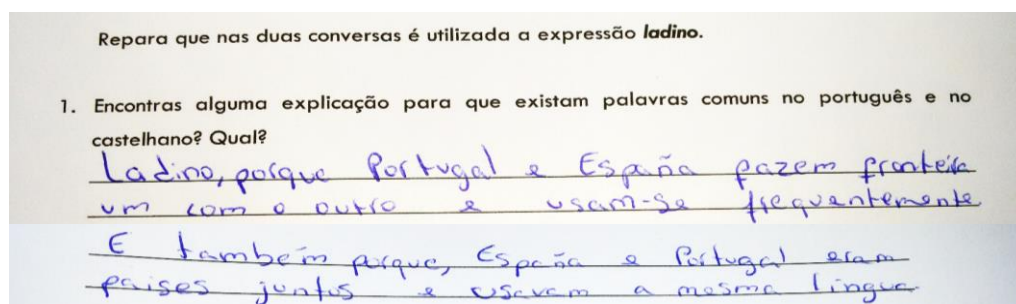 Repara que nas duas conversas é utilizada a expressão ladino.
1. Encontras alguma explicação para que existam palavras comuns no português e no
castelhano? Qual?
Ladino, porque Portugal e España fazem fronteira
um com o outro e usam-se frequentemente
E também porque, España e Portugal eram
paises juntos e usavam a mesma lingua